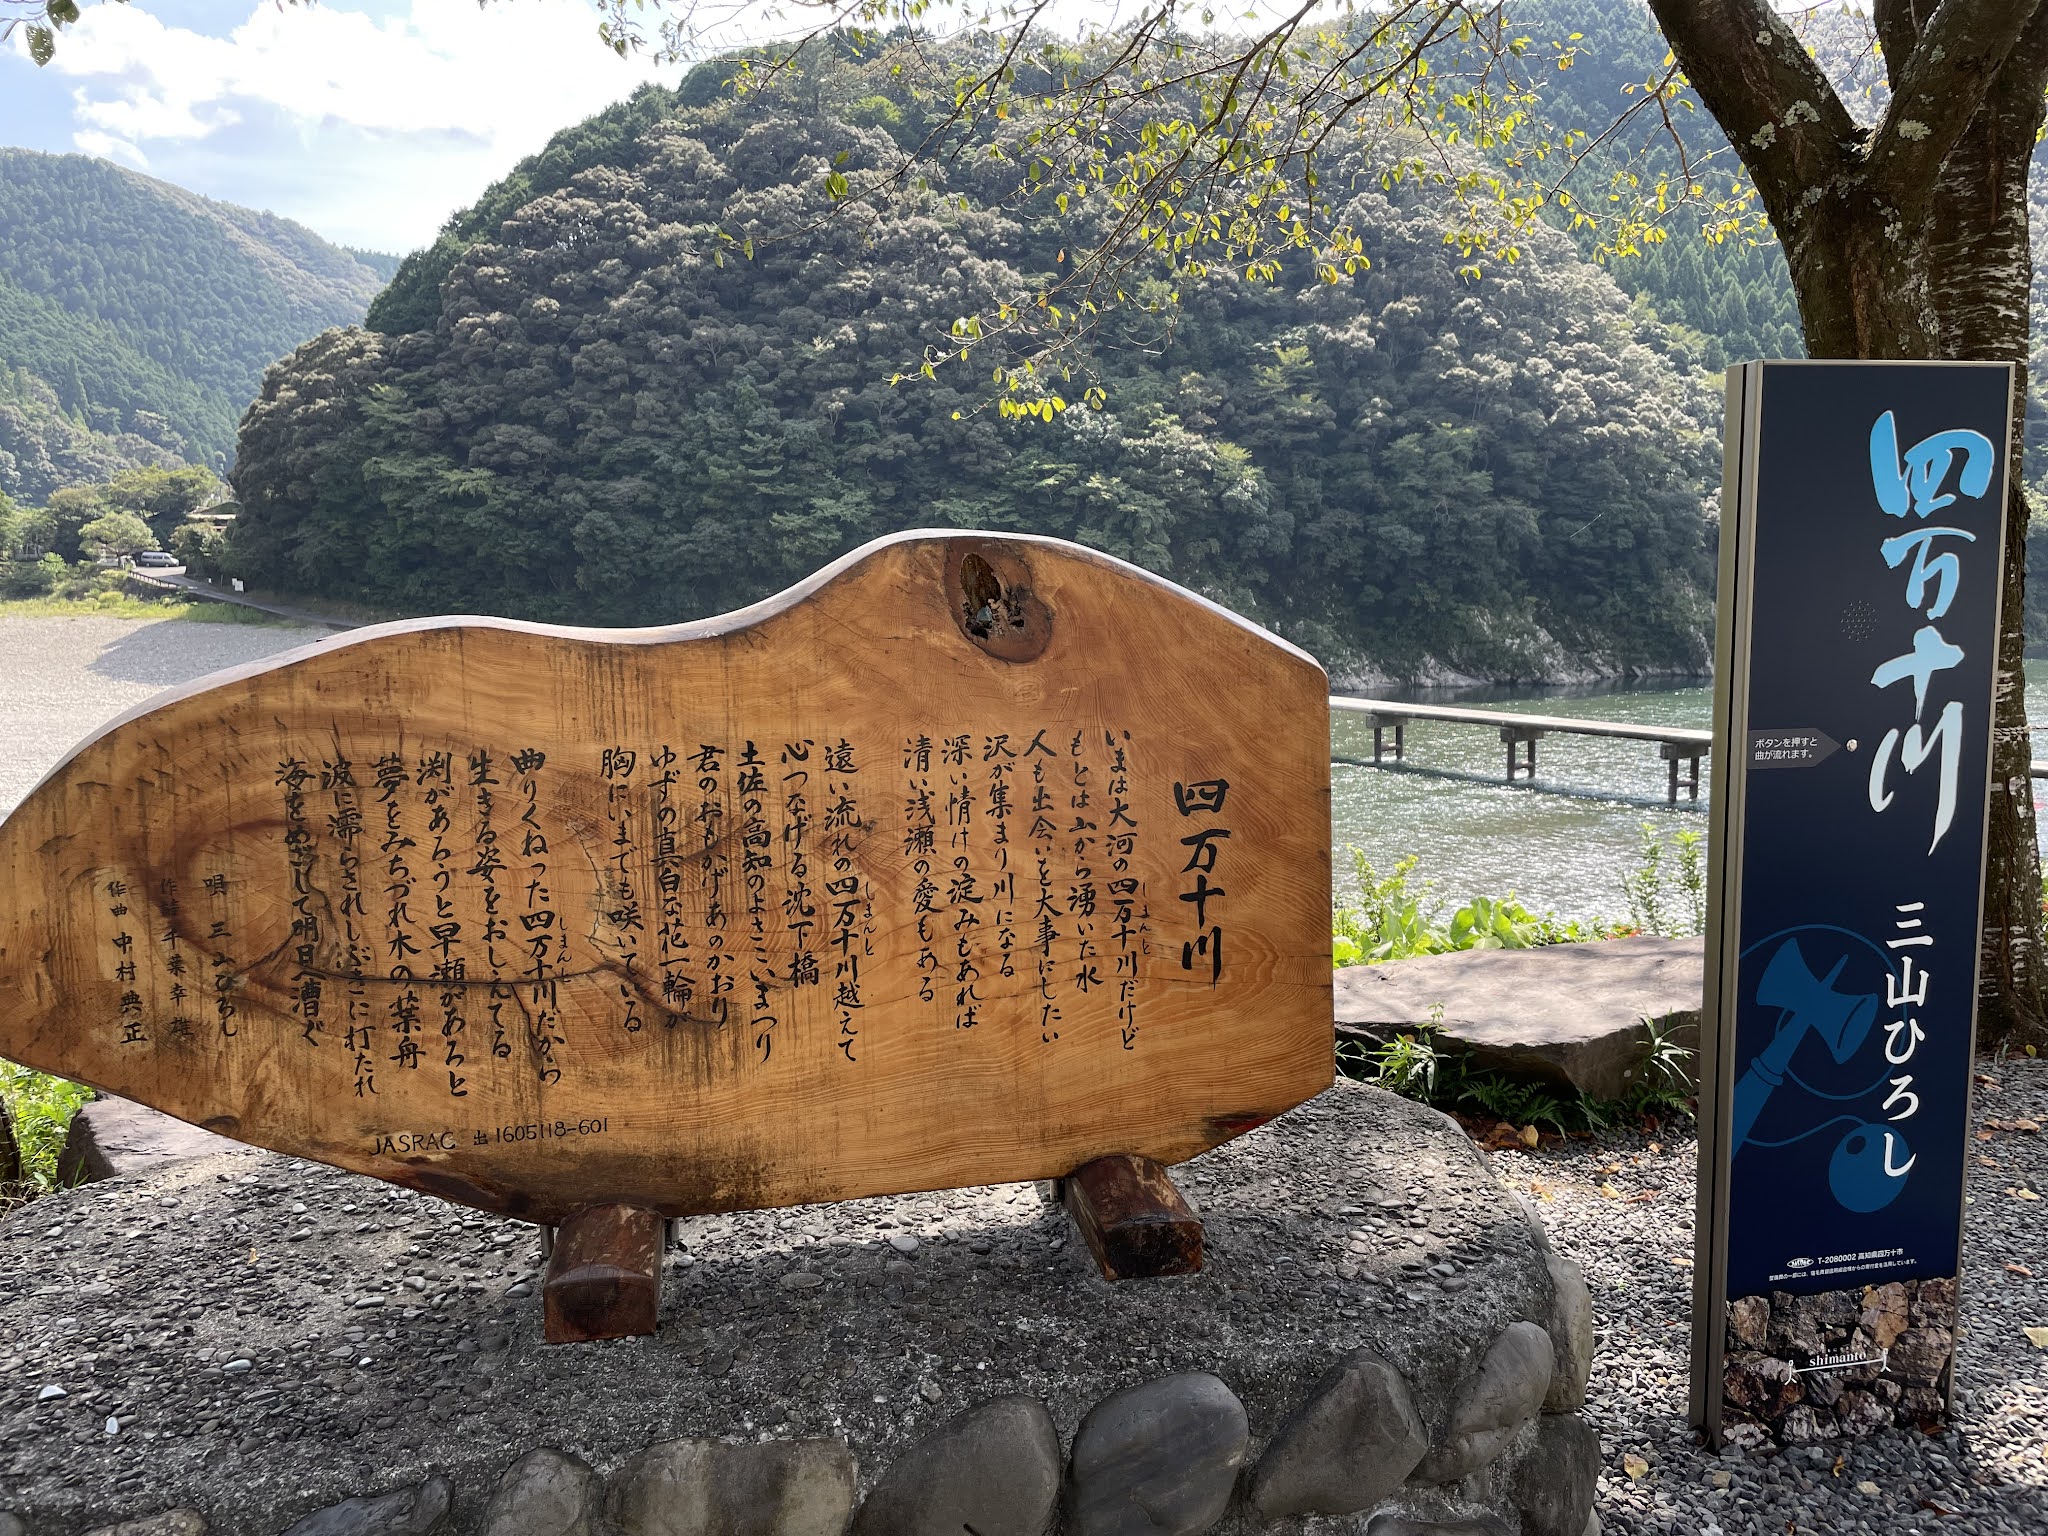 四万十川
いまは大河の四万十川だけど
しまんと
もとは山から湧いた水
人も出会いを大事にしたい
沢が集まり川になる
深い情けの淀みもあれば
清い浅瀬の愛もある
遠い流れの四万十川越えて
しまんと
心つなげる沈下橋
土佐の高知のよさこいまつり
君のおもかげあのかおり
ゆずの真白な花一輪が
胸にいまでも咲いている
曲りくねった四万十川だから
しまんと
生きる姿をおしえてる
渕があろうと早瀬があろと
夢をみちづれ木の葉舟
波に濡らされしぶきに打たれ
海をめざして明日へ漕ぐ
唄 三山ひろし
作詩 千葉幸雄
作曲 中村典正
JASRAC 出1605118-601
四万十川
三山ひろし
ボタンを押すと
曲が流れます。
T-2080002 高知県四万十市
shimanto